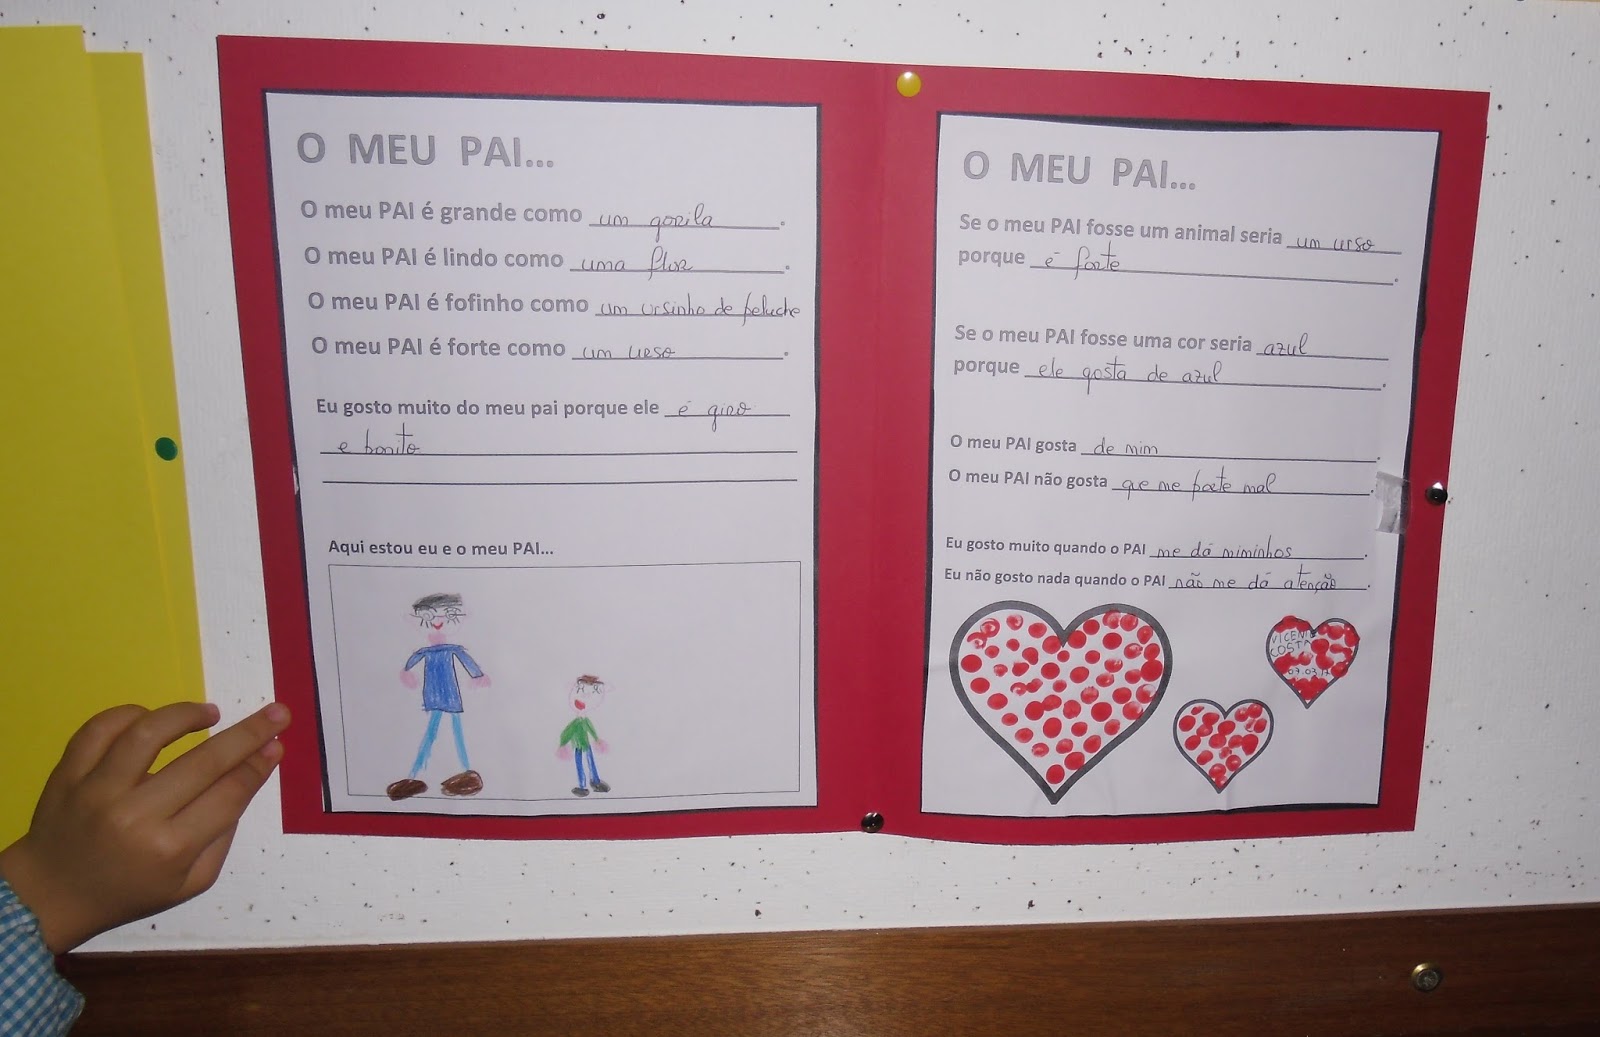 O MEU PAI...
O meu PAI é grande como um gorila.
O meu PAI é lindo como uma flor.
O meu PAI é fofinho como um ursinho de peluche
O meu PAI é forte como um urso.
Eu gosto muito do meu pai porque ele é giro
e bonito
Aqui estou eu e o meu PAI...
O MEU PAI...
Se o meu PAI fosse um animal seria um urso
porque é forte.
Se o meu PAI fosse uma cor seria azul
porque ele gosta de azul.
O meu PAI gosta de mim.
O meu PAI não gosta que me porte mal.
Eu gosto muito quando o PAI me dá miminhos.
Eu não gosto nada quando o PAI não me dá atenção.
COSTA